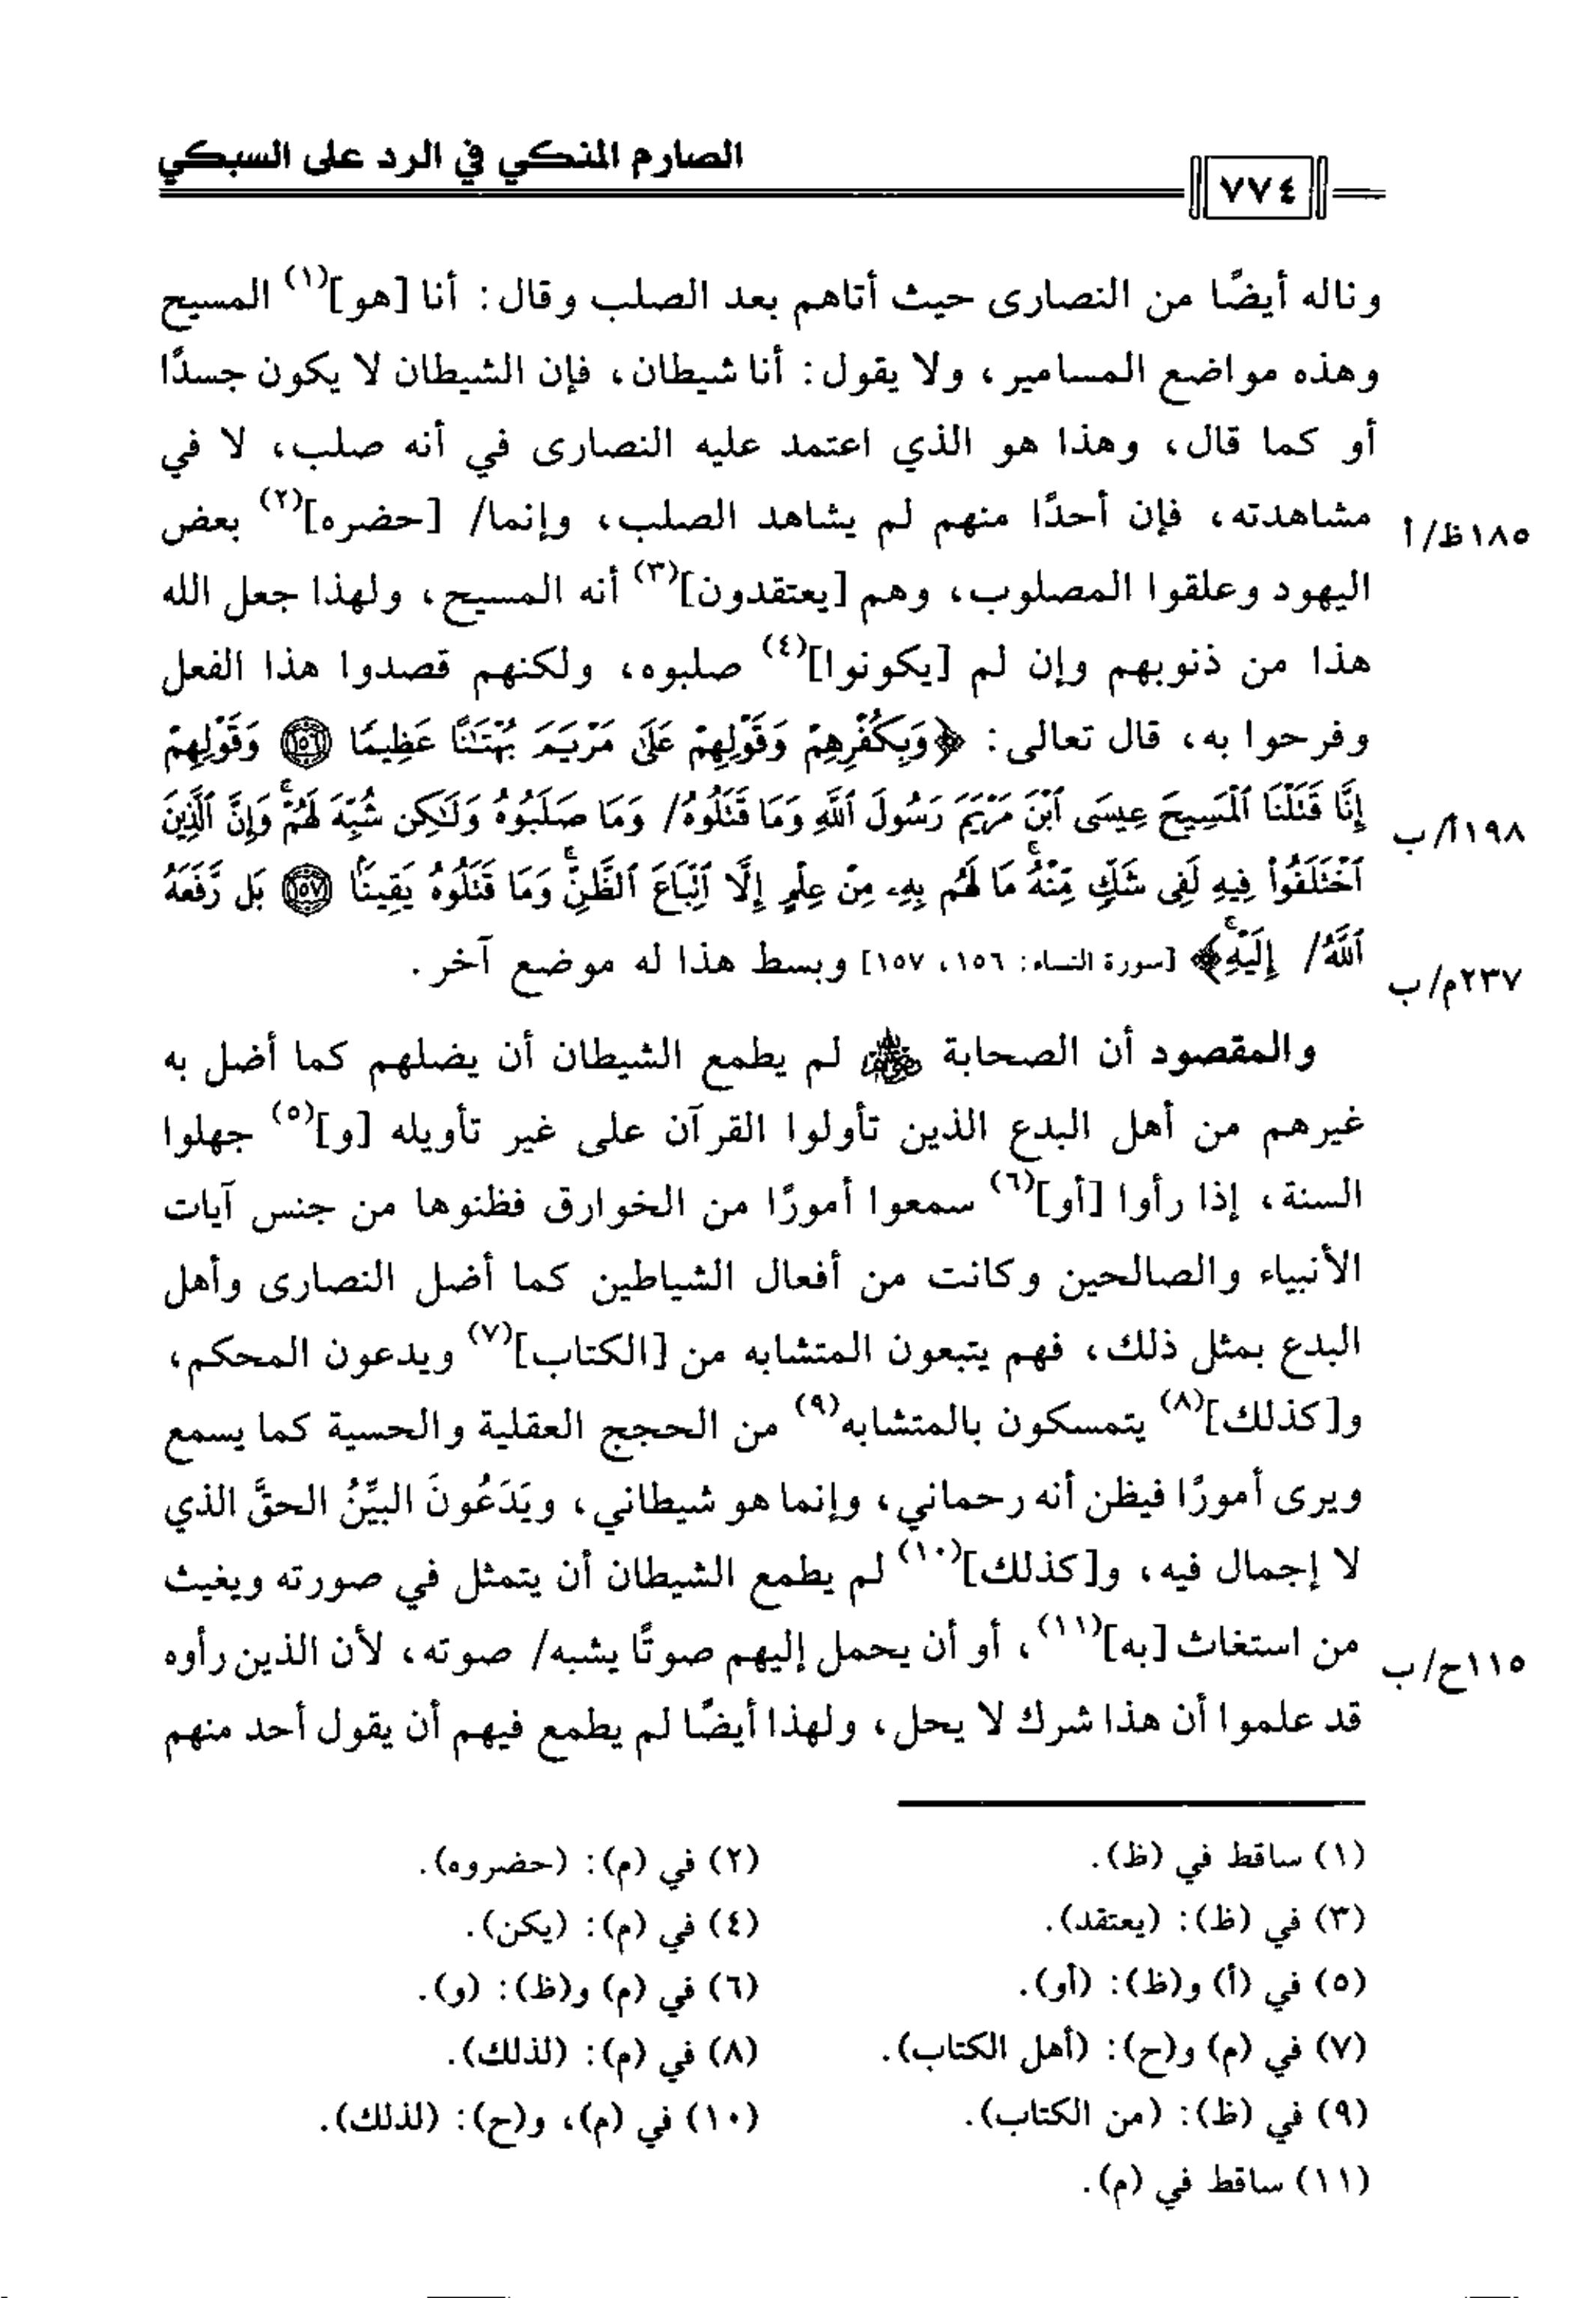 الصارم المنكي في الرد على السبكي
٧٧٤
وناله أيضًا من النصارى حيث أتاهم بعد الصلب وقال: أنا [هو](١) المسيح
وهذه مواضع المسامير، ولا يقول: أنا شيطان، فإن الشيطان لا يكون جسدًا
أو كما قال، وهذا هو الذي اعتمد عليه النصارى في أنه صلب، لا في
مشاهدته، فإن أحدًا منهم لم يشاهد الصلب، وإنما/ [حضره](٢) بعض
١٨٥ظ/أ
اليهود وعلقوا المصلوب، وهم [يعتقدون](٣) أنه المسيح، ولهذا جعل الله
هذا من ذنوبهم وإن لم [يكونوا](٤) صلبوه، ولكنهم قصدوا هذا الفعل
وفرحوا به، قال تعالى: ﴿وَبِكُفْرِهِمْ وَقَوْلِهِمْ عَلَىٰ مَرْيَمَ بُهْتَٰنًا عَظِيمًا ١٥٦ وَقَوْلِهِمْ
إِنَّا قَتَلْنَا ٱلْمَسِيحَ عِيسَى ٱبْنَ مَرْيَمَ رَسُولَ ٱللَّهِ وَمَا قَتَلُوهُ/ وَمَا صَلَبُوهُ وَلَٰكِن شُبِّهَ لَهُمْ ۚ وَإِنَّ ٱلَّذِينَ
١٩٨أ/ب
ٱخْتَلَفُوا۟ فِيهِ لَفِى شَكٍّ مِّنْهُ ۚ مَا لَهُم بِهِۦ مِنْ عِلْمٍ إِلَّا ٱتِّبَاعَ ٱلظَّنِّ ۚ وَمَا قَتَلُوهُ يَقِينًۢا ١٥٧ بَل رَّفَعَهُ
ٱللَّهُ/ إِلَيْهِ ۚ﴾ [سورة النساء: ١٥٦، ١٥٧] وبسط هذا له موضع آخر.
٢٣٧م/ب
والمقصود أن الصحابة رضي الله عنهم لم يطمع الشيطان أن يضلهم كما أضل به
غيرهم من أهل البدع الذين تأولوا القرآن على غير تأويله [و](٥) جهلوا
السنة، إذا رأوا [أو](٦) سمعوا أمورًا من الخوارق فظنوها من جنس آيات
الأنبياء والصالحين وكانت من أفعال الشياطين كما أضل النصارى وأهل
البدع بمثل ذلك، فهم يتبعون المتشابه من [الكتاب](٧) ويدعون المحكم،
و[كذلك](٨) يتمسكون بالمتشابه(٩) من الحجج العقلية والحسية كما يسمع
ويرى أمورًا فيظن أنه رحماني، وإنما هو شيطاني، ويَدَعُونَ البيِّنُ الحقَّ الذي
لا إجمال فيه، و[كذلك](١٠) لم يطمع الشيطان أن يتمثل في صورته ويغيث
من استغاث [به](١١)، أو أن يحمل إليهم صوتًا يشبه/ صوته، لأن الذين رأوه
١١٥ح/ب
قد علموا أن هذا شرك لا يحل، ولهذا أيضًا لم يطمع فيهم أن يقول أحد منهم
(١) ساقط في (ظ).
(٢) في (م): (حضروه).
(٣) في (ظ): (يعتقد).
(٤) في (م): (يكن).
(٥) في (أ) و(ظ): (أو).
(٦) في (م) و(ظ): (و).
(٧) في (م) و(ح): (أهل الكتاب).
(٨) في (م): (لذلك).
(٩) في (ظ): (من الكتاب).
(١٠) في (م)، و(ح): (لذلك).
(١١) ساقط في (م).